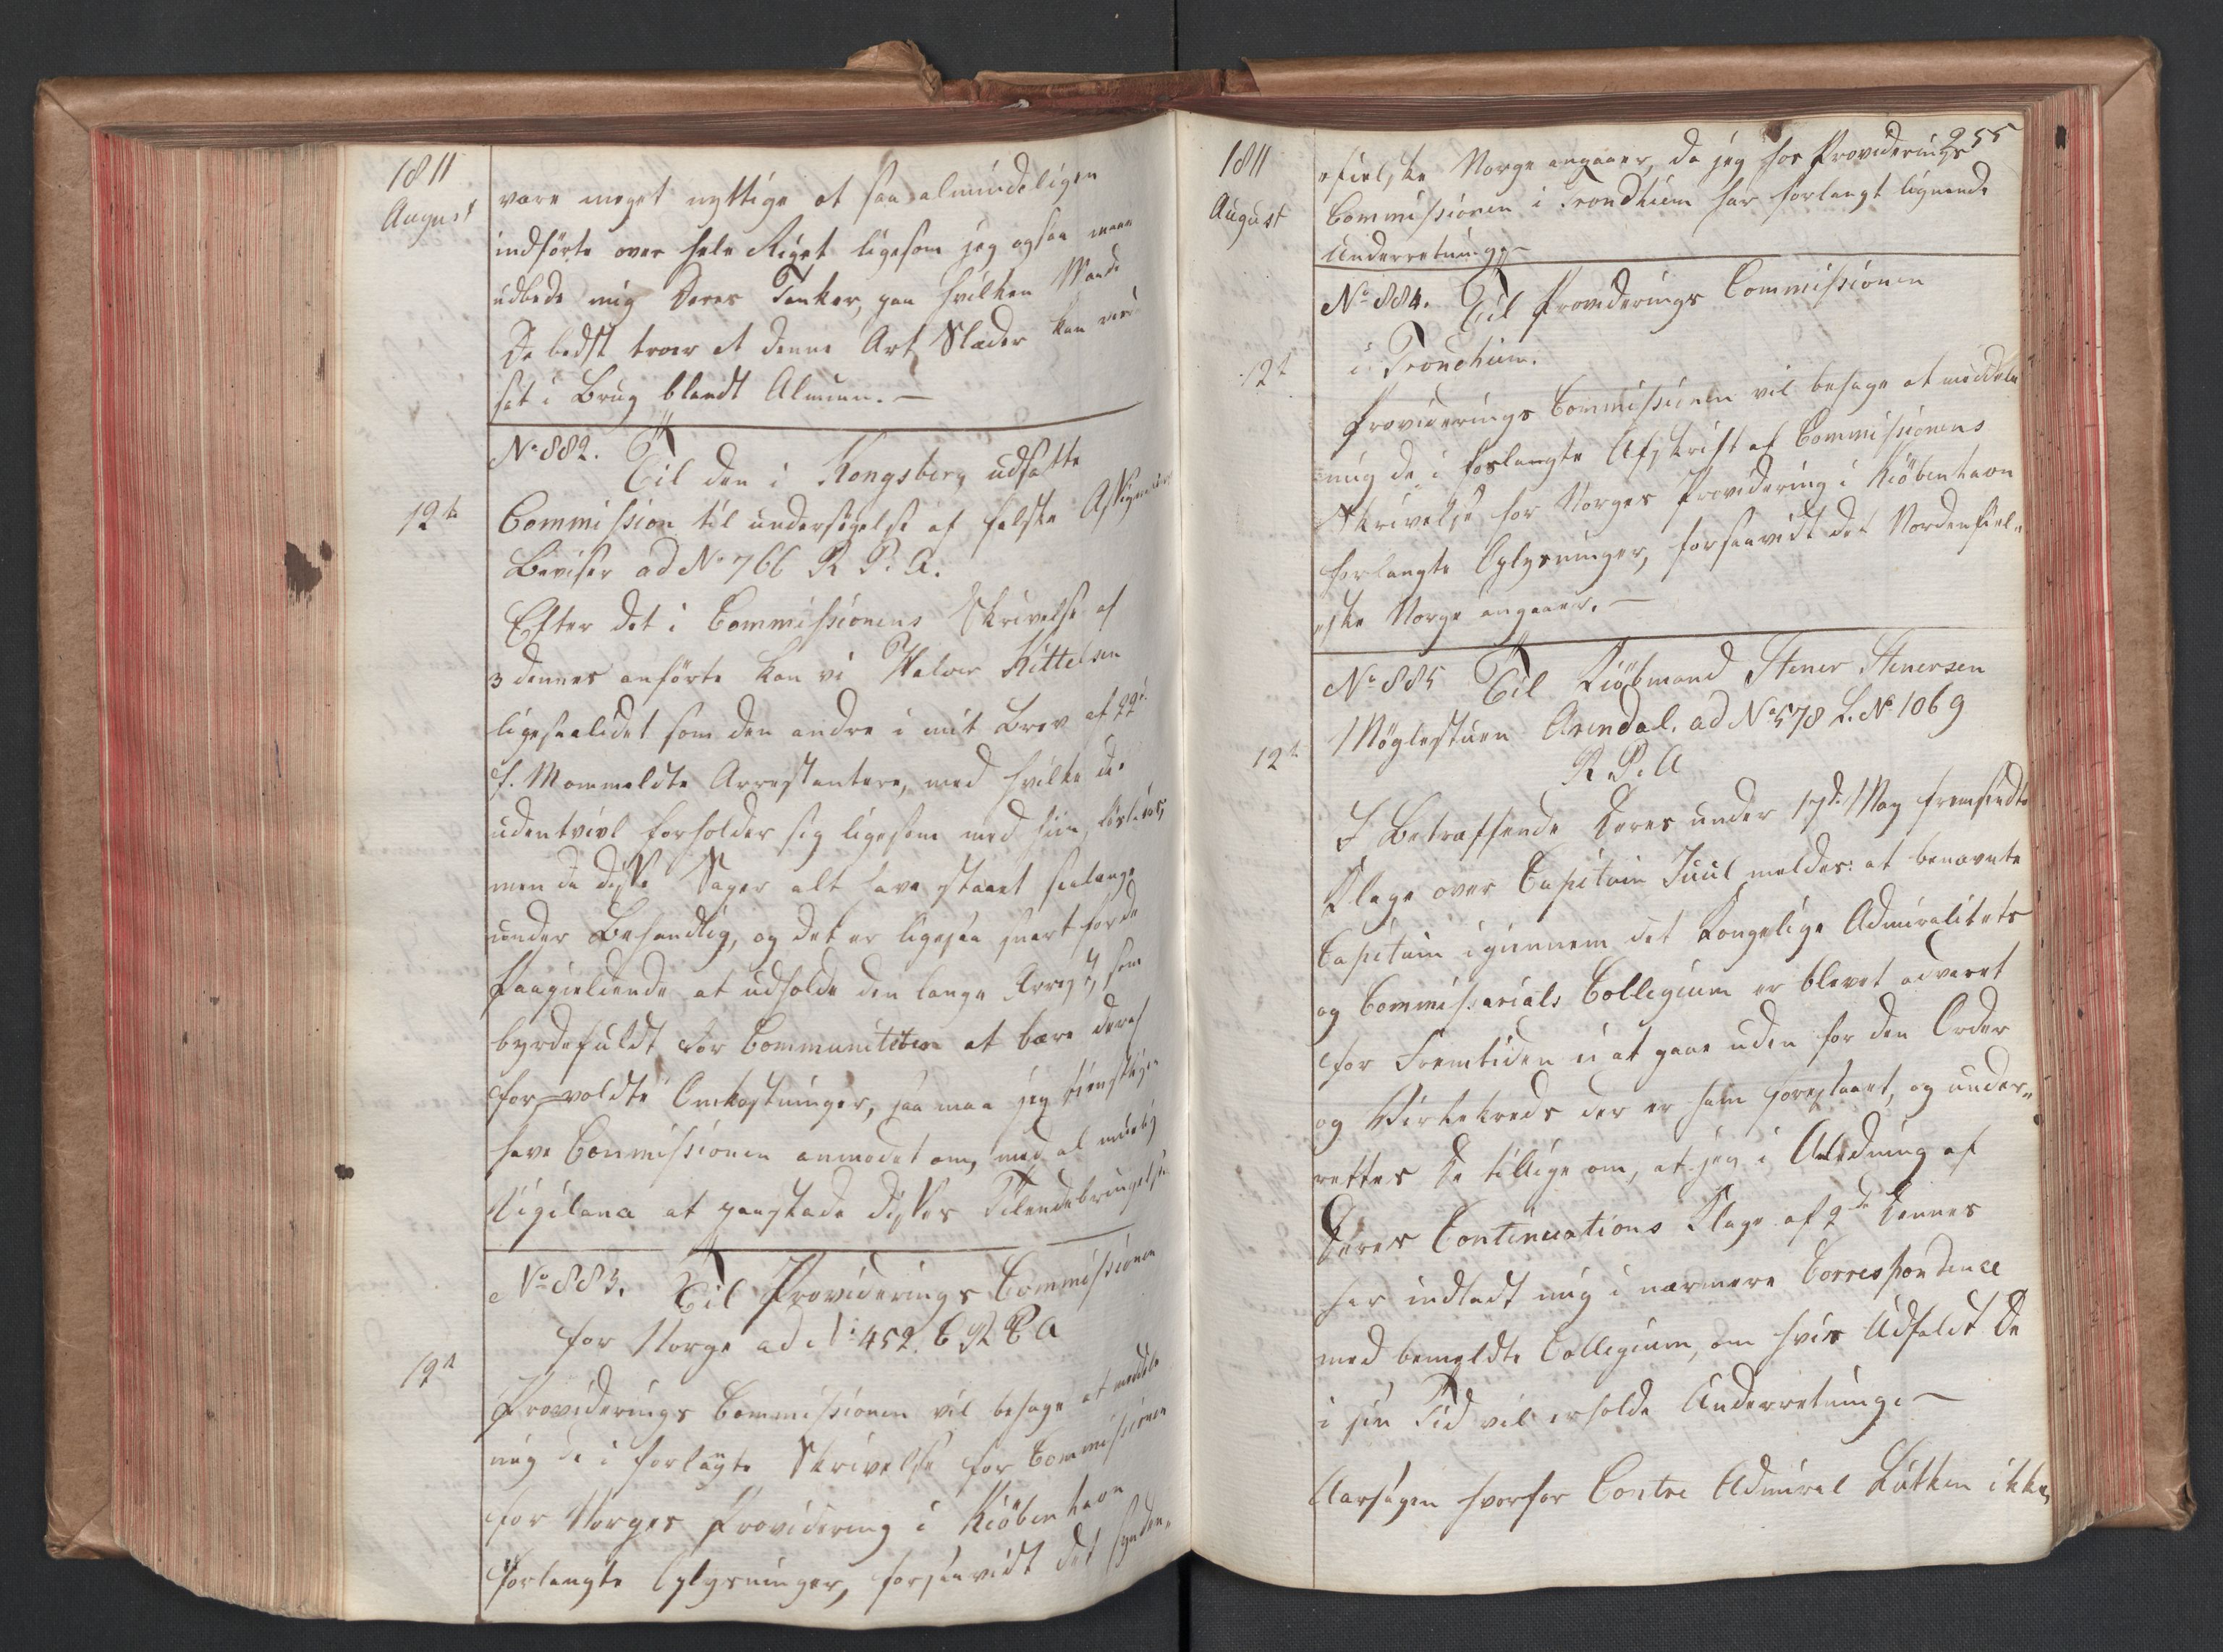 1811
August
være meget nyttige at faa almindeligen
indførte over hele Riget ligesom jeg ogsaa maae
udbede mig Deres Tanker, paa hvilken Maade
De bedst troer at denne Art Slæder kan vær
sat i Brug blandt Almuen. —
No 882. Til den i Kongsberg udsatte
12te
Commission til undersøgelse af falske Assignations
Beviser ad No 766 R. P. A.
Efter det i Commissionens Skrivelse af
3 dennes anførte kan vi Halvor Kittelsen
ligesaalidet som den andre i mit Brev af 22de
f. M ommeldte Arrestantere, med hvilke det
udentvivl forholder sig ligesom med hiin, løslades,
men da disse Sager alt have staaet saalænge
under Behandlig, og det er ligesaa svært for de
Paagieldende at udholde den lange Arrest, som
byrdefuldt for Communiteten at bære deres
forvoldte Omkostninger, saa maa jeg tienstligen
have Commissionen anmodet om, med al muelig
Vigilance at paaskynde disses Tilendebringelse
No 883. Til Providerings Commissionen
for Norge ad No 452. C R C A
12te
Providerings Commissionen vil behage at meddele
mig de i forlagte Skrivelse fra Commissionen
for Norges Providering i Kiøbenhavn
forlangte Oplysninger, forsaavidt det synden-
1811
August
255
efielske Norge angaaer, da jeg hos Provideringss
Commissionen i Trondhiem har forlangt lignende
Underretning. —
No 884. Til Provideringss Commissionen
i Trondhiem.
12te
Provideringss Commissionen vil behage at meddele
mig de i forlangte Afskrift af Commissionens
Skrivelse for Norges Providering i Kiøbenhavn
forlangte Oplysninger, forsaavidt det Nordenfiel-
ske Norge angaaer. —
No 885 Til Kiøbmand Stener Stenersen
12te
Møglestuen Arendal. ad No 578 L. No 1069
R. P. A
I Betræffende Deres under 17de May fremsendte
Klage over Capitain Juul meldes: at benævnte
Capitain igiennem det Kongelige Admiralitets
og Commissariats Collegium er blevet advaret
for Fremtiden ei at gaae uden for den Orden
og Virkekreds der er ham forestaaet, og under-
rettes De tillige om, at jeg i Anledning af
Deres Continuations Klage af 9de dennes
har indladt mig i nærmere Correspondence
med bemeldte Collegium, om hvis Udfald De
i sin Tid vil erholde Underretning. —
Aarsagen hvorfor Contre Admiral Lütken ikke